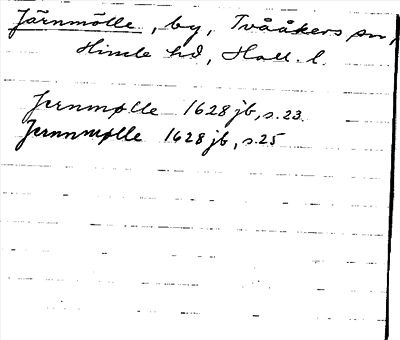 Järnmölle, by, Tvååkers sn,
Himle hd, Hall. l.
Jernmølle 1628 jb, s. 23
Jernnmølle 1628 jb, s. 25